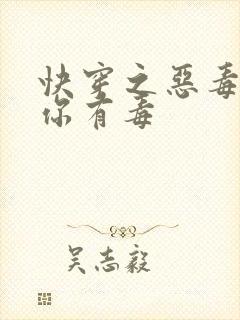 快穿之惡毒
你有毒
吴志毅